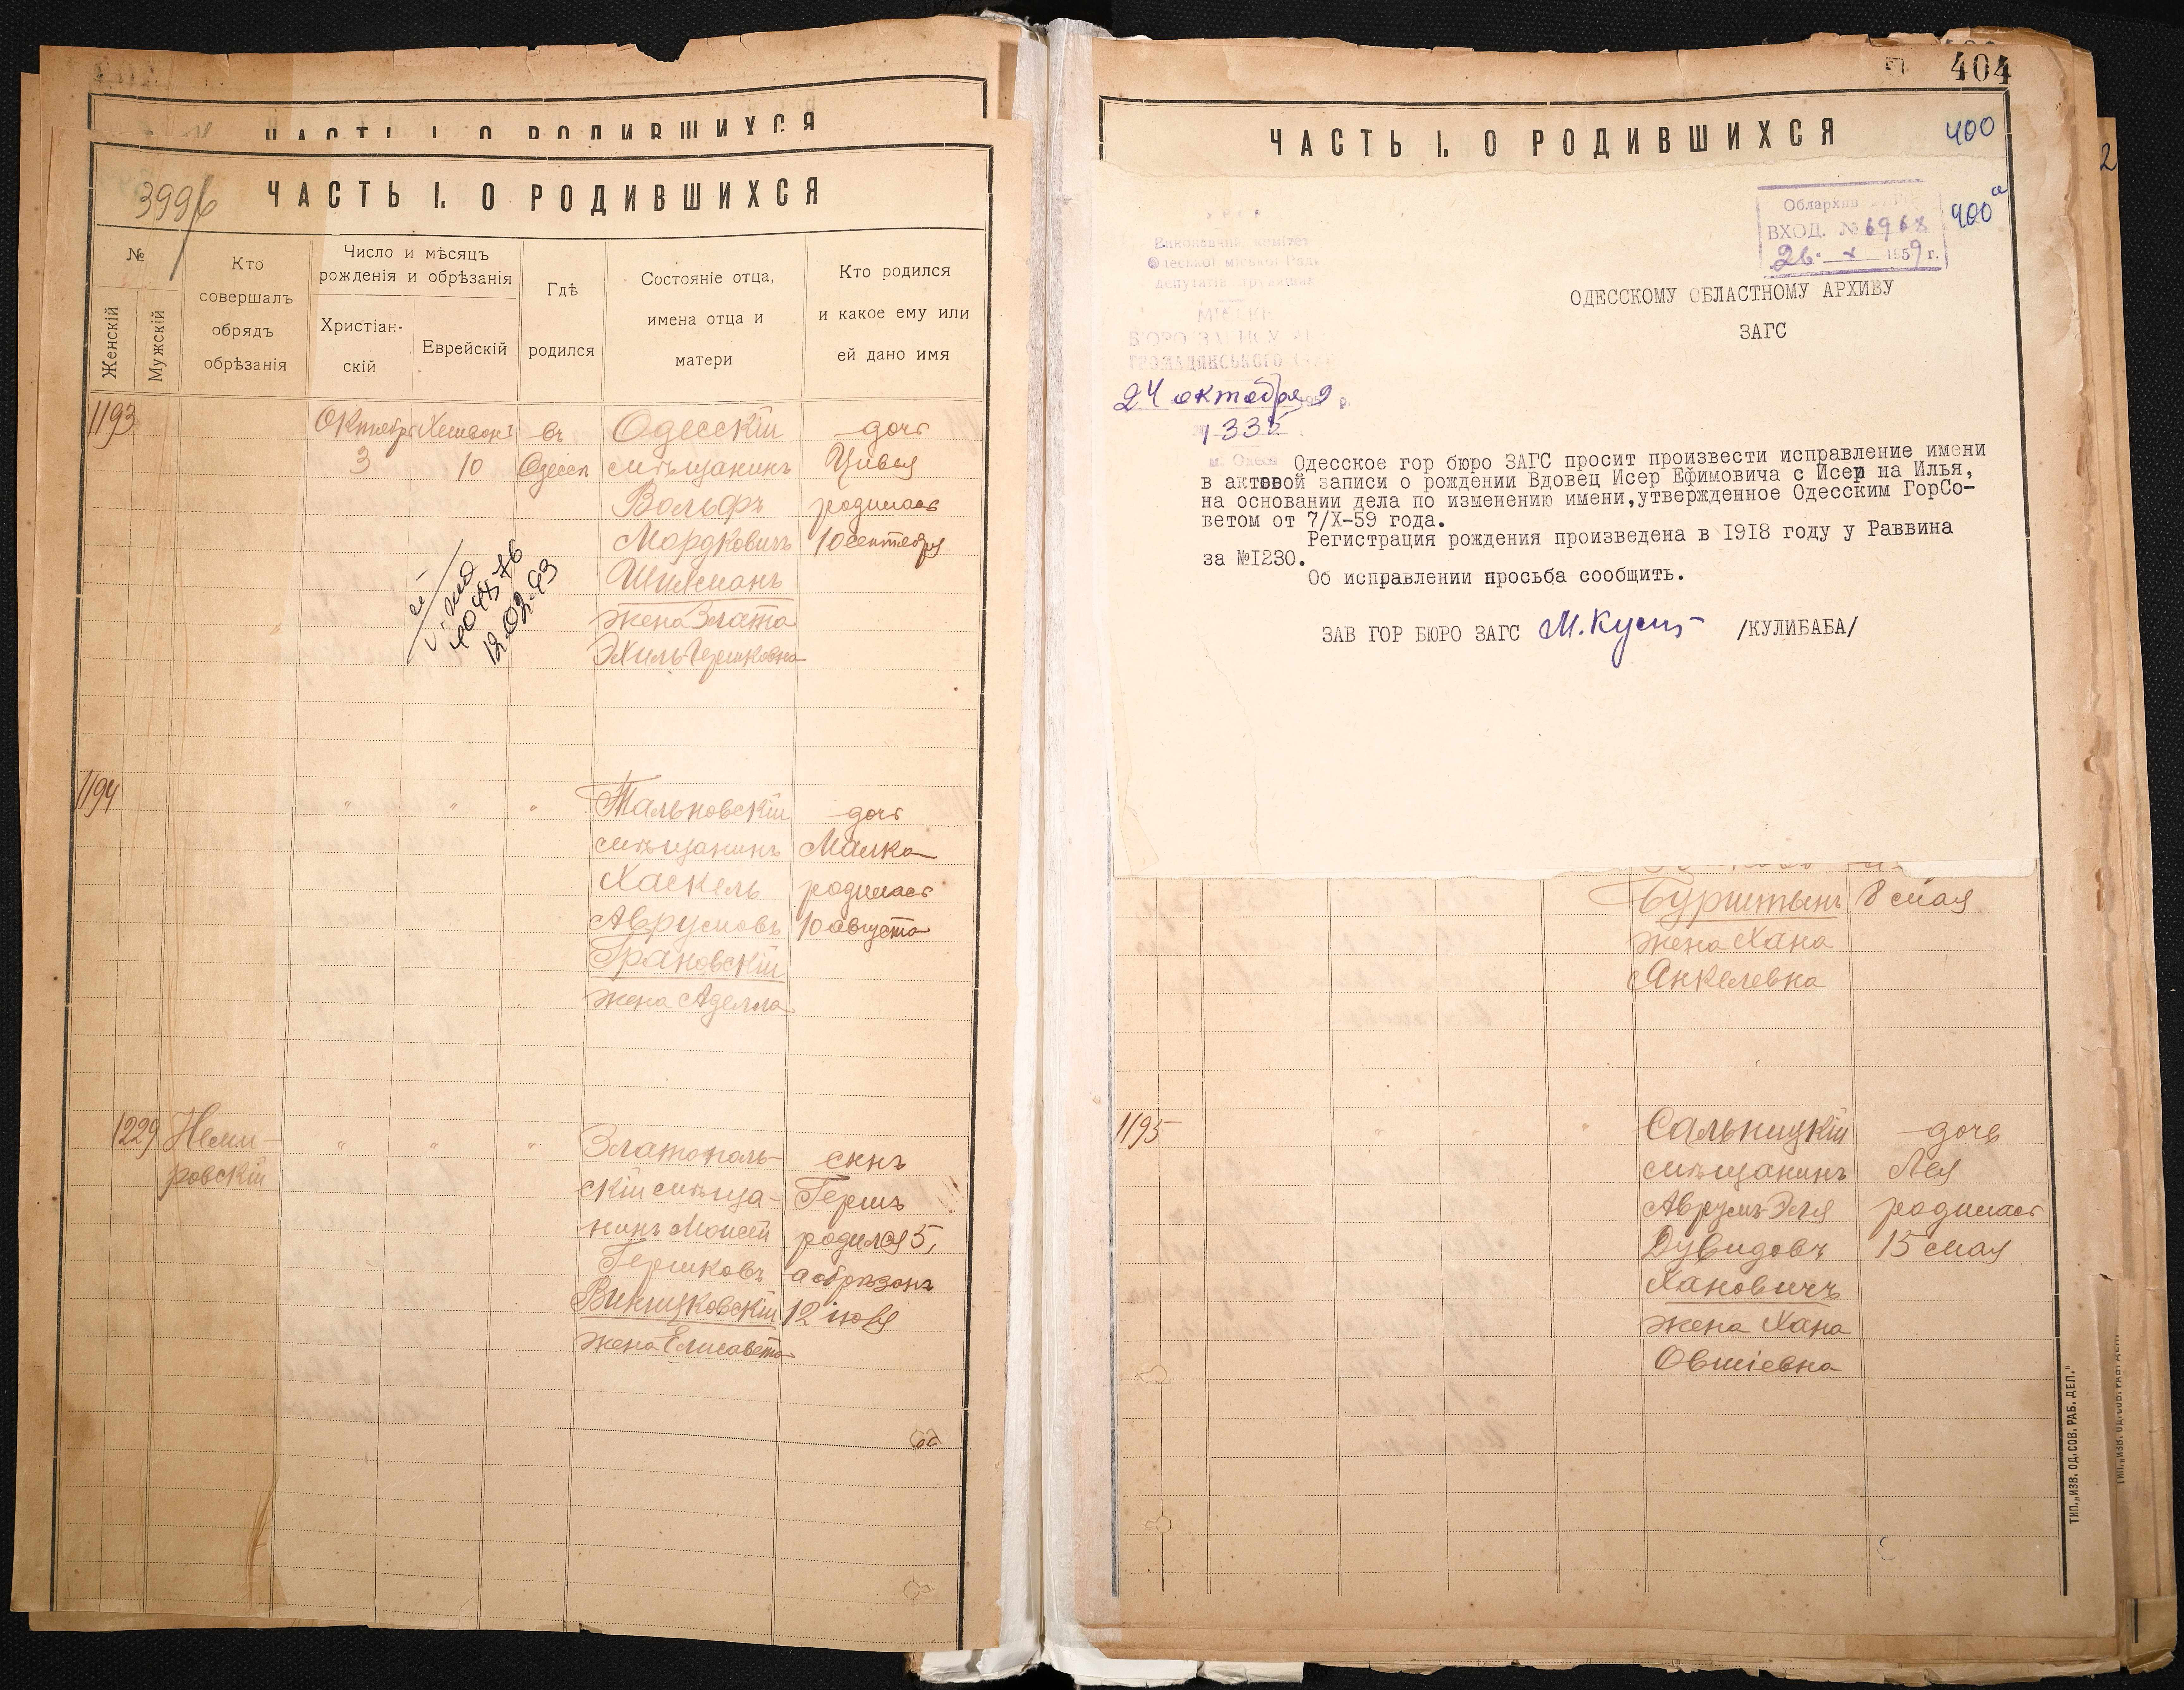 ЧАСТЬ I. О РОДИВШИХСЯ
ЧАСТЬ I. О РОДИВШИХСЯ
№
Женскій
Мужскій
Кто
совершалъ
обрядъ
обрѣзанія
Число и мѣсяцъ
рожденія и обрѣзанія
Христіан-
скій
Еврейскій
Гдѣ
родился
Состояніе отца,
имена отца и
матери
Кто родился
и какое ему или
ей дано имя
1193
Октябрь
3
10
въ
Одессѣ
Одесскій
мѣщанинъ
Вольфъ
Мордковичъ
жена Злата
дочь
Цивья
родилась
10 сентября
12.02.93
1194
" " "
Тальновскій
мѣщанинъ
Хаскель
Аврумовъ
Грановскій
жена Аделла
дочь
Малка
родилась
10 августа
1229
Неми-
ровскій
" " "
Златополь-
скій мѣща-
нинъ Моисей
Гершковъ
жена Елисавета
сынъ
Гершъ
родился 5,
а обрѣзанъ
12 іюля
404
ЧАСТЬ I. О РОДИВШИХСЯ
400
400а
Облархив
ВХОД. № 6968
26 - X 1959 г.
Виконавчий комітет
Одеської міської Ради
депутатів трудящих
ГРОМАДЯНСЬКОГО
24 октября
1335
м. Одеса
ОДЕССКОМУ ОБЛАСТНОМУ АРХИВУ
ЗАГС
Одесское гор бюро ЗАГС просит произвести исправление имени
в актовой записи о рождении Вдовец Исер Ефимовича с Исер на Илья,
на основании дела по изменению имени,утвержденное Одесским ГорСо-
ветом от 7/X-59 года.
Регистрация рождения произведена в 1918 году у Раввина
за №1230.
Об исправлении просьба сообщить.
ЗАВ ГОР БЮРО ЗАГС /КУЛИБАБА/
Бурштынъ
жена Хана
Янкелевна
8 мая
1195
Сальницкій
мѣщанинъ
Аврумъ Эля
Дувидовъ
Хановичъ
жена Хана
Овшіевна
дочь
Лея
родилась
15 мая
ТИП. „ИЗВ. ОД. СОВ. РАБ. ДЕП."